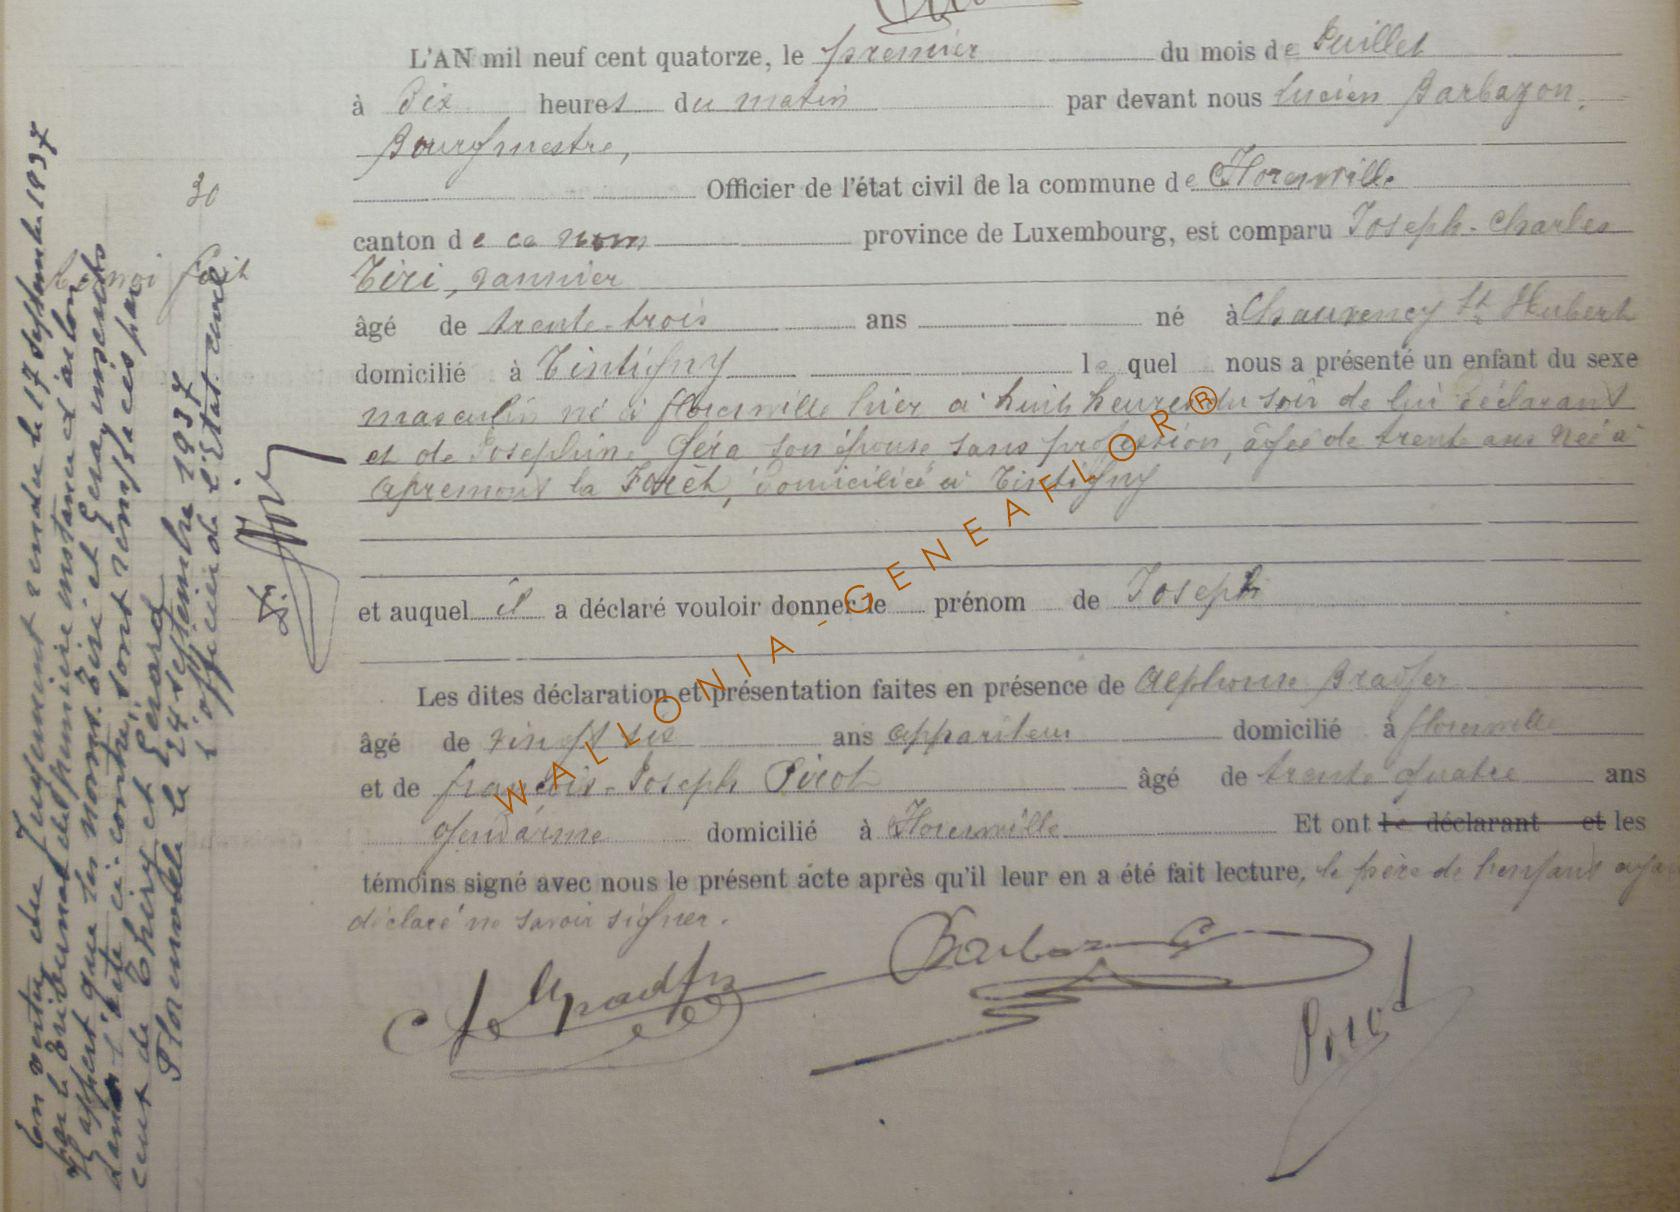 L'AN mil neuf cent quatorze, le premier du mois de Juillet
à Dix heures du matin par devant nous Lucien Barbazon,
Bourgmestre,
Officier de l'état civil de la commune de Florenville
canton de ce nom province de Luxembourg, est comparu Joseph-Charles
Tiri, vannier
âgé de trente-trois ans né à Chauvency St Hubert
domicilié à Tintigny lequel nous a présenté un enfant du sexe
masculin né à florenville hier à huit heures du soir de lui déclarant
et de Joséphine Géra son épouse sans profession, âgée de trente ans née à
apremont la Forêt, domiciliée à Tintigny
et auquel il a déclaré vouloir donner le prénom de Joseph
Les dites déclaration et présentation faites en présence de Alphonse Bradfer
âgé de vingt six ans appariteur domicilié à florenville
et de françois-Joseph Pirot âgé de trente quatre ans
Gendarme domicilié à Florenville Et ont le déclarant et les
témoins signé avec nous le présent acte après qu'il leur en a été fait lecture, le père de l'enfant aya
déclaré ne savoir signer.
A Bradfer Barbazon
Pirot
30
Renvoi fait
En vertu du Jugement rendu le 17 septembre 1937
par le Tribunal de première instance d'Arlon
Il appert que les noms: Tiri et Gera, mentionnés
dans l'acte ci-contre, sont remplacés par
ceux de Thiry et Gérard
Florenville le 24 septembre 1937
L'officier de l'Etat civil
WALLONIA - GENEAFLOR ®